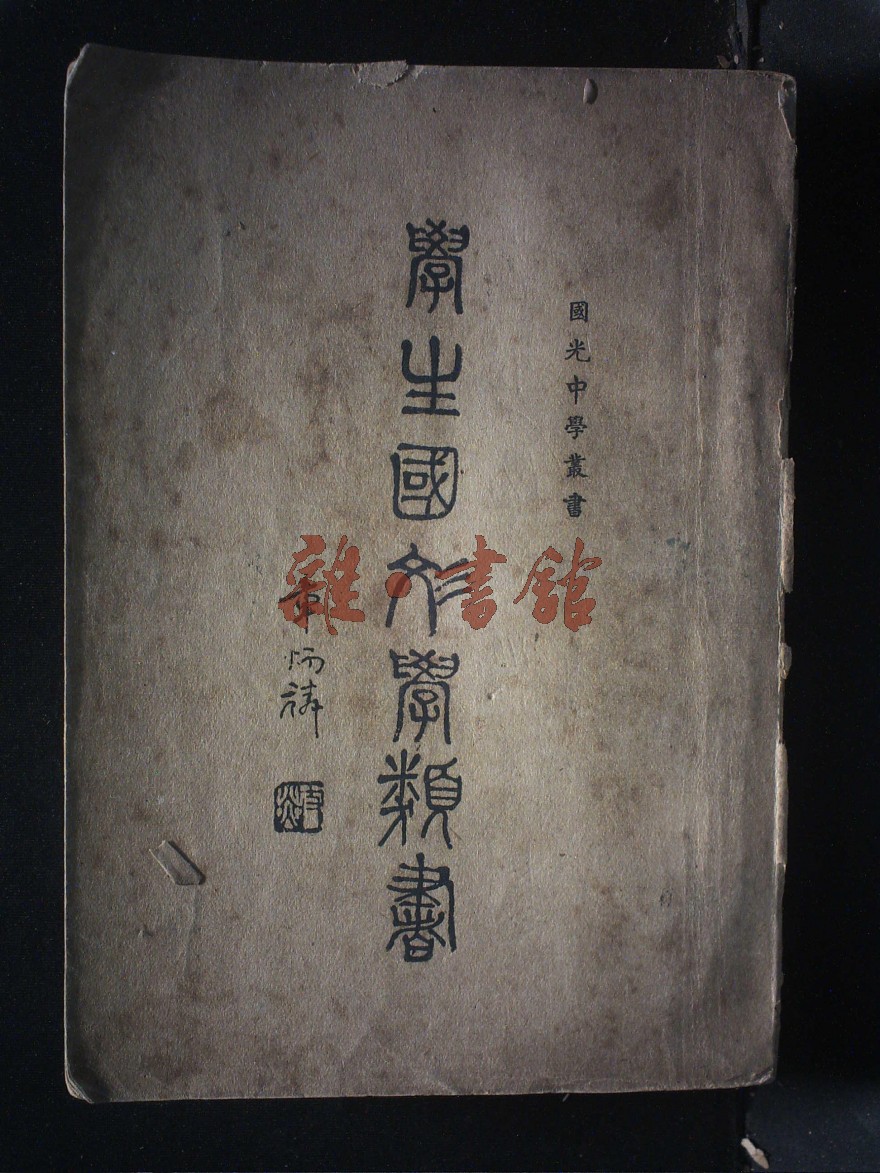 國光中學叢書
學生國彣學類書
章炳麟
雜·書館